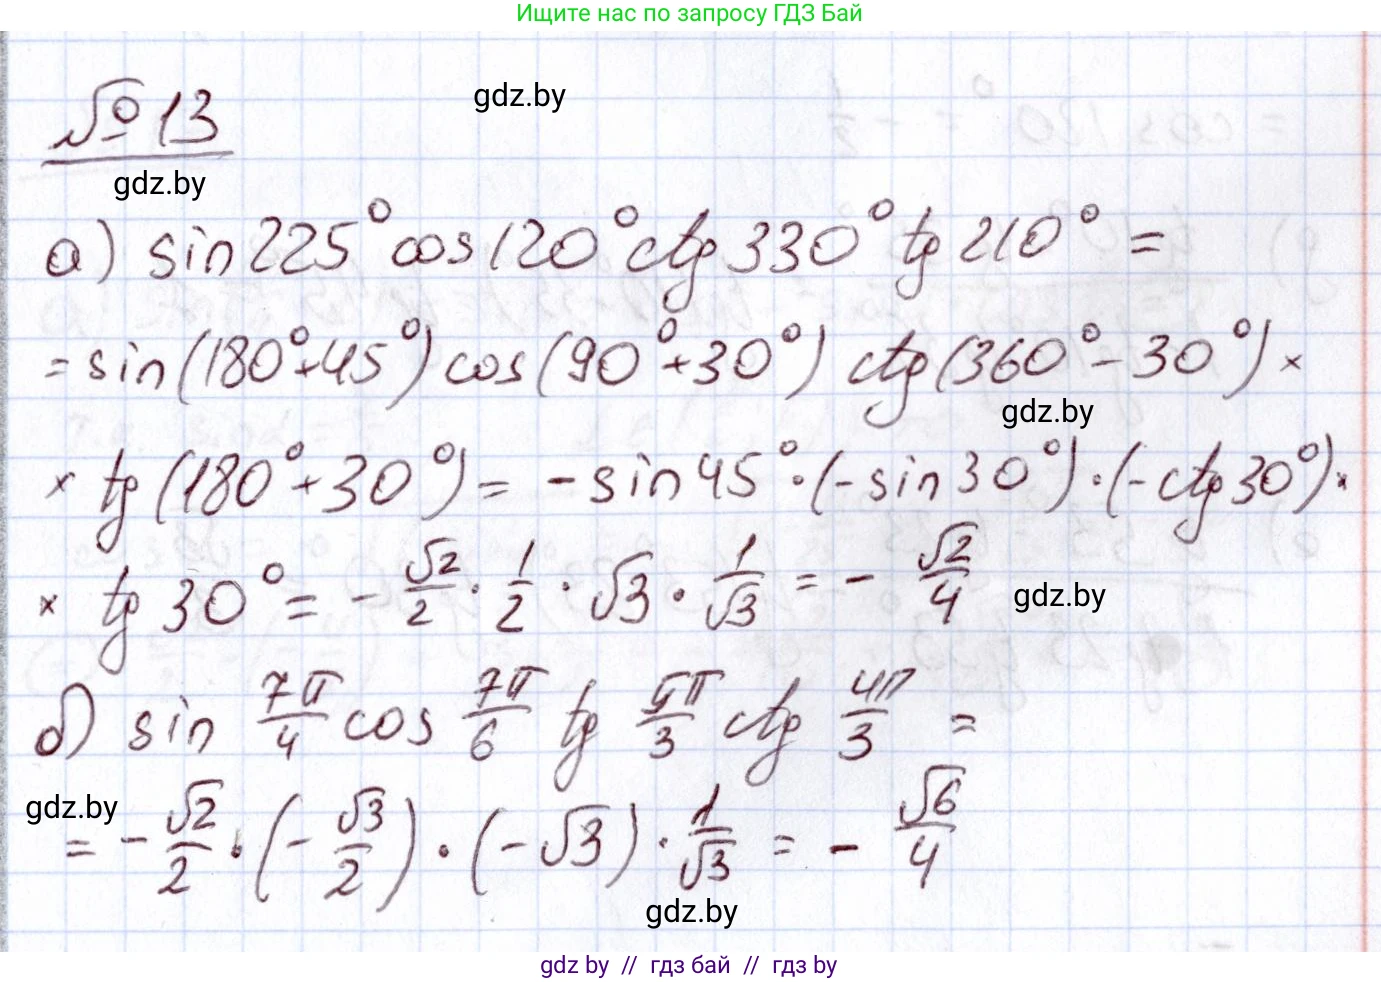 Ищите нас по запросу ГДЗ Бай
gdz.by
№ 13
gdz.by
а) sin 225° cos 120° ctg 330° tg 210° =
= sin(180°+45°) cos(90°+30°) ctg(360°-30°) ×
gdz.by
× tg(180°+30°) = -sin 45° · (-sin 30°) · (-ctg 30°) ×
× tg 30° = - √2/2 · 1/2 · √3 · 1/√3 = - √2/4
gdz.by
б) sin 7π/4 cos 7π/6 tg 5π/3 ctg 4π/3 =
gdz.by
= - √2/2 · (- √3/2) · (-√3) · 1/√3 = - √6/4
gdz.by
gdz by // гдз бай // гдз by